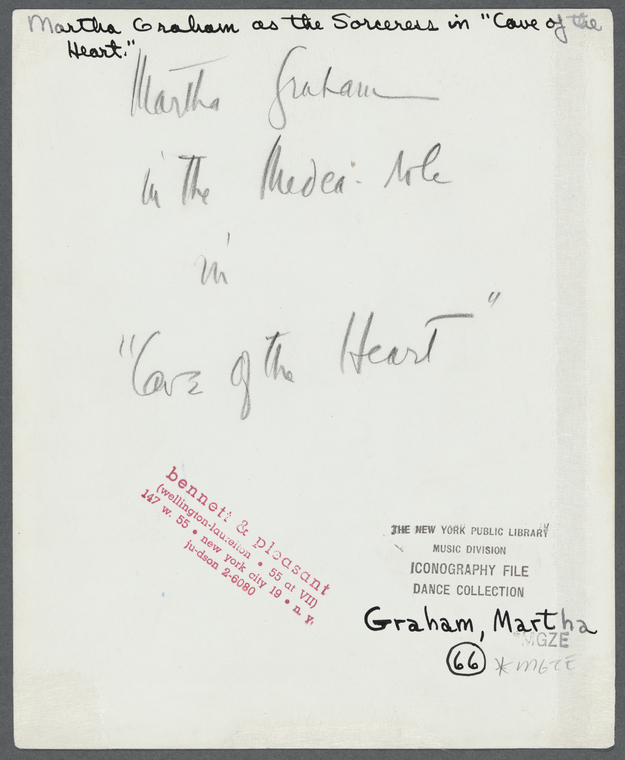 Martha Graham as the Sorceress in "Cave of the
Heart."
Martha Graham
in the Medea - role
in
"Cave of the Heart"
bennett & pleasant
(wellington-laureiton • 55 at VII)
147 w. 55 • new york city 19 • n. y.
ju-dson 2-6080
THE NEW YORK PUBLIC LIBRARY
MUSIC DIVISION
ICONOGRAPHY FILE
DANCE COLLECTION
Graham, Martha
*MGZE
66 *MGZE